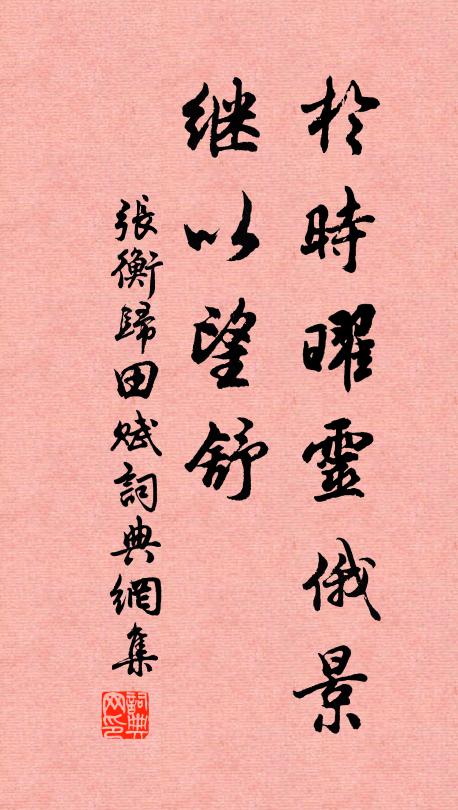 於時曜靈俄景
继以望舒
張衡歸田赋詞典網集
詞典
网印